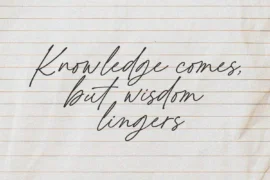 Knowledge comes,
but wisdom
lingers